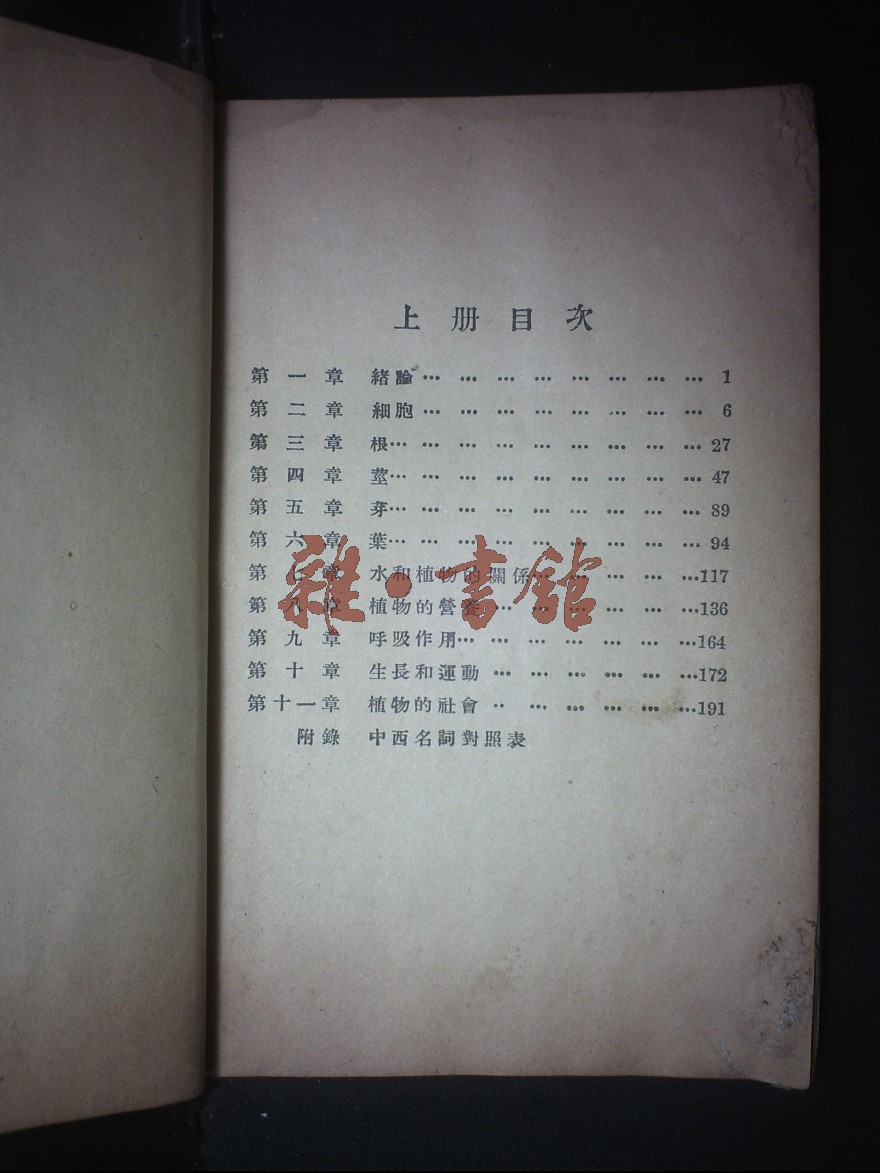 上册目次
第一章 緒論… … … … … … … … 1
第二章 細胞… … … … … … … … 6
第三章 根… … … … … … … … … 27
第四章 莖… … … … … … … … … 47
第五章 芽… … … … … … … … … 89
第六章 葉… … … … … … … … … 94
第七章 水和植物的關係… … … … …117
第八章 植物的營養 … … … … … …136
第九章 呼吸作用… … … … … … …164
第十章 生長和運動 … … … … … …172
第十一章 植物的社會 … … … … … …191
附錄 中西名詞對照表
雜·書館